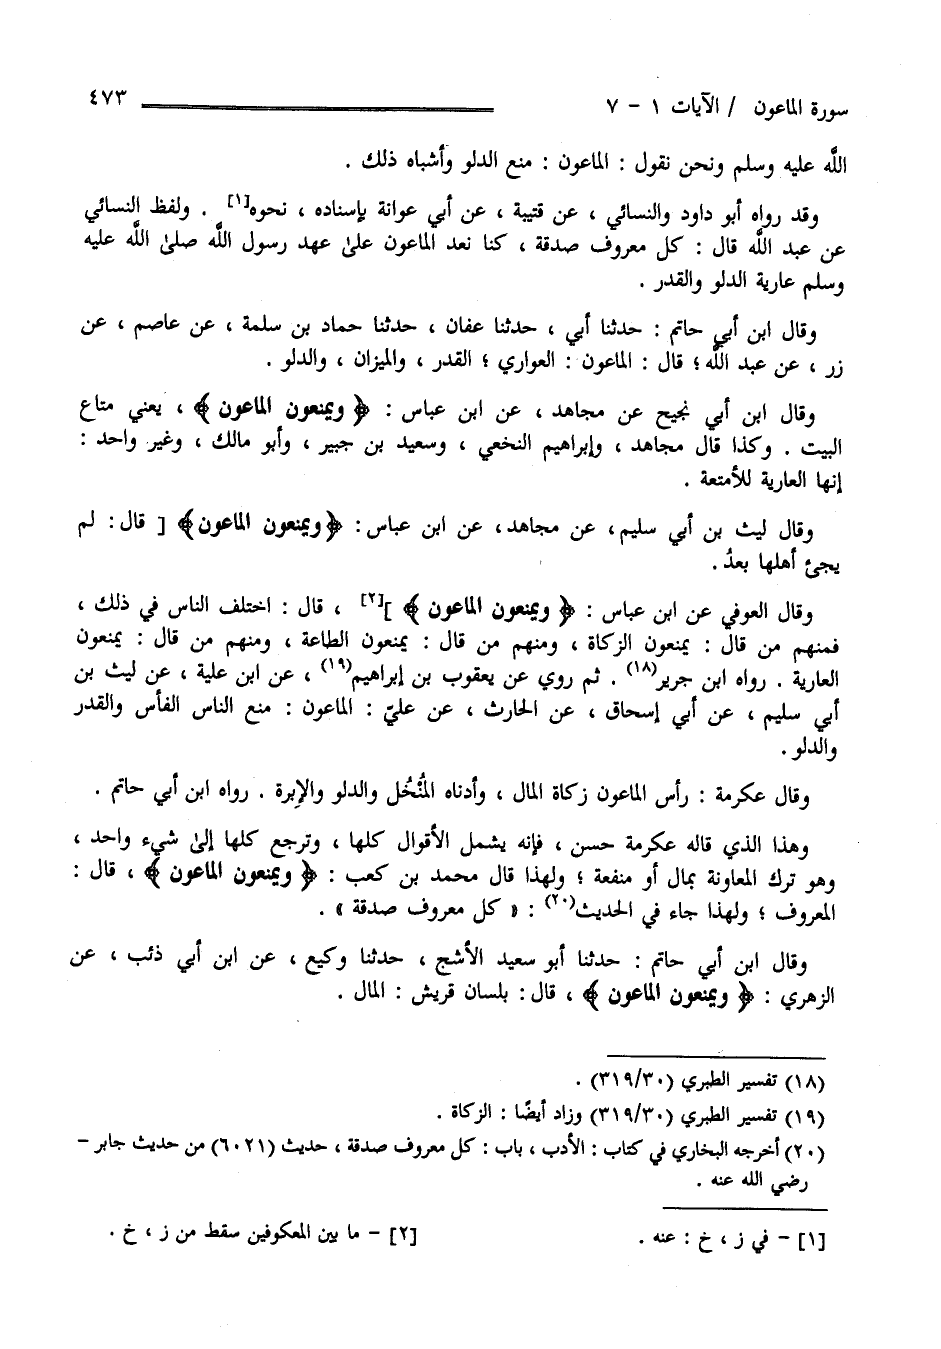 سورة الماعون / الآيات ١ - ٧ ٤٧٣
اللَّه عليه وسلم ونحن نقول : الماعون : منع الدلو وأشباه ذلك .
وقد رواه أبو داود والنسائي ، عن قتيبة ، عن أبي عوانة بإسناده ، نحوه[١] . ولفظ النسائي
عن عبد اللَّه قال : كل معروف صدقة ، كنا نعد الماعون علىٰ عهد رسول اللَّه صلىٰ اللَّه عليه
وسلم عارية الدلو والقدر .
وقال ابن أبي حاتم : حدثنا أبي ، حدثنا عفان ، حدثنا حماد بن سلمة ، عن عاصم ، عن
زر ، عن عبد اللَّه ؛ قال : الماعون : العواري ؛ القدر ، والميزان ، والدلو .
وقال ابن أبي نجيح عن مجاهد ، عن ابن عباس : ﴿ ويمنعون الماعون ﴾ ، يعني متاع
البيت . وكذا قال مجاهد ، وإبراهيم النخعي ، وسعيد بن جبير ، وأبو مالك ، وغير واحد :
إنها العارية للأمتعة .
وقال ليث بن أبي سليم، عن مجاهد، عن ابن عباس: ﴿ويمنعون الماعون﴾ [ قال: لم
يجئ أهلها بعدُ.
وقال العوفي عن ابن عباس : ﴿ ويمنعون الماعون ﴾ ][٢] ، قال : اختلف الناس في ذلك ،
فمنهم من قال : يمنعون الزكاة ، ومنهم من قال : يمنعون الطاعة ، ومنهم من قال : يمنعون
العارية . رواه ابن جرير(١٨) . ثم روي عن يعقوب بن إبراهيم(١٩) ، عن ابن علية ، عن ليث بن
أبي سليم ، عن أبي إسحاق ، عن الحارث ، عن عليّ : الماعون : منع الناس الفأس والقدر
والدلو .
وقال عكرمة : رأس الماعون زكاة المال ، وأدناه المُنْخُل والدلو والإبرة . رواه ابن أبي حاتم .
وهذا الذي قاله عكرمة حسن ، فإنه يشمل الأقوال كلها ، وترجع كلها إلىٰ شيء واحد ،
وهو ترك المعاونة بمال أو منفعة ؛ ولهذا قال محمد بن كعب : ﴿ ويمنعون الماعون ﴾ ، قال :
المعروف ؛ ولهذا جاء في الحديث(٢٠) : « كل معروف صدقة » .
وقال ابن أبي حاتم : حدثنا أبو سعيد الأشج ، حدثنا وكيع ، عن ابن أبي ذئب ، عن
الزهري : ﴿ ويمنعون الماعون ﴾ ، قال: بلسان قريش : المال .
(١٨) تفسير الطبري (٣١٩/٣٠) .
(١٩) تفسير الطبري (٣١٩/٣٠) وزاد أيضًا : الزكاة .
(٢٠) أخرجه البخاري في كتاب : الأدب ، باب : كل معروف صدقة ، حديث (٦٠٢١) من حديث جابر -
رضي الله عنه .
[١] - في ز ، خ : عنه . [٢] - ما بين المعكوفين سقط من ز ، خ .